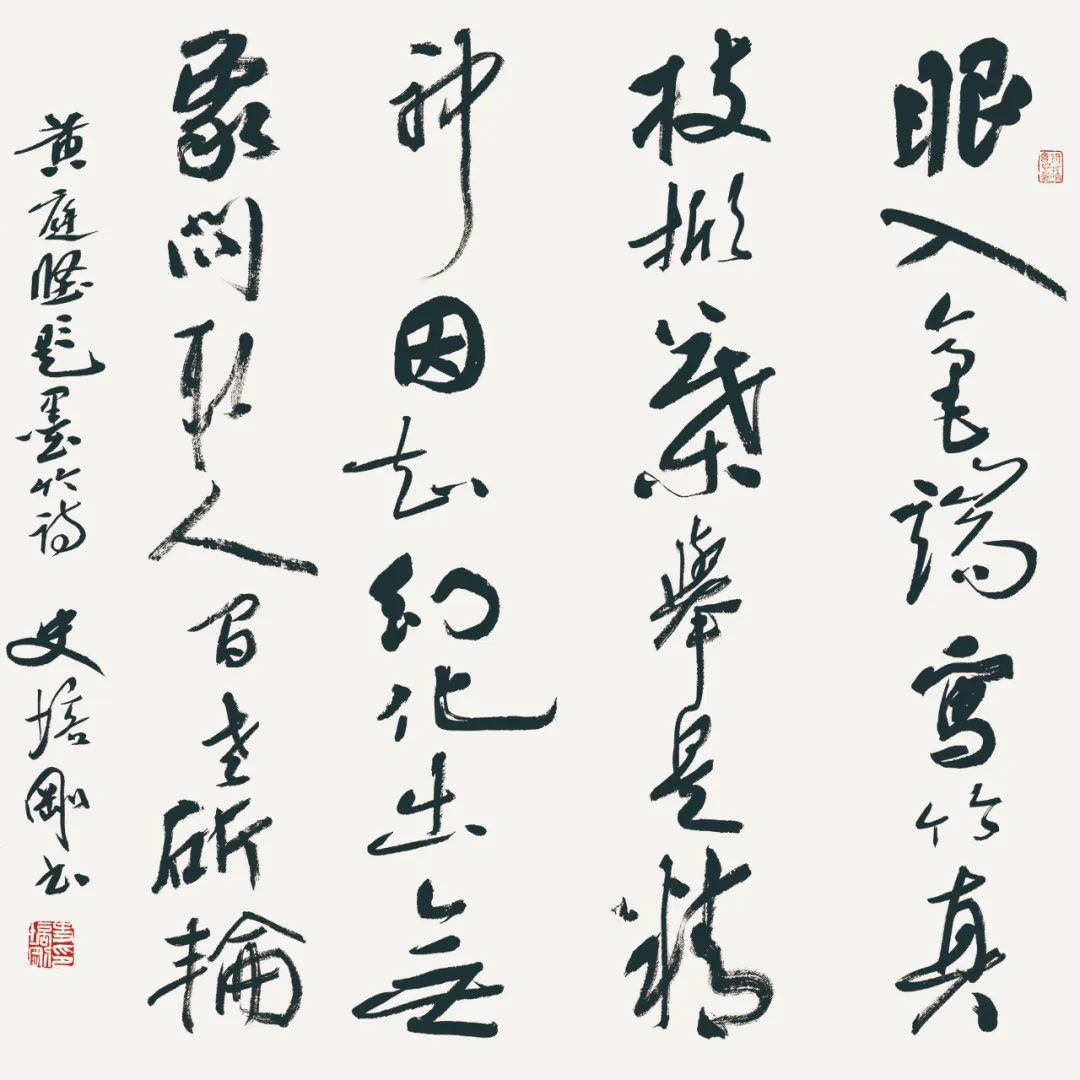 眼入毫端寫竹真
枝掀葉舉是精
神因知幻化出無
象問取人間老斫輪
黄庭堅題墨竹詩 史培剛書